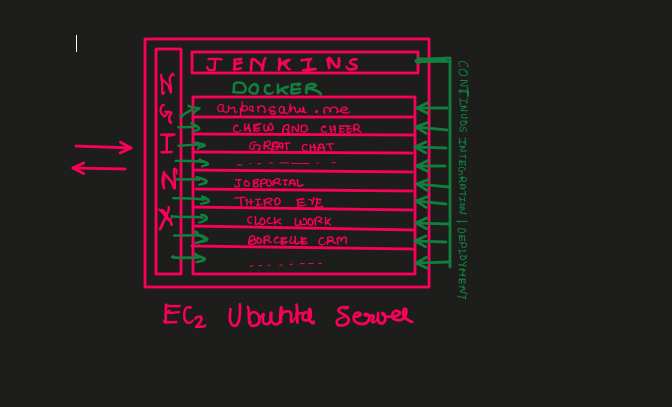 JENKINS
DOCKER
NGINX
arpansahu.me
CHEW AND CHEER
GREAT CHAT
JOBPORTAL
THIRD EYE
CLOCK WORK
BORCELLE CRM
CONTINUOS INTEGRATION | DEPLOYMENT
EC2 Ubuntu Server